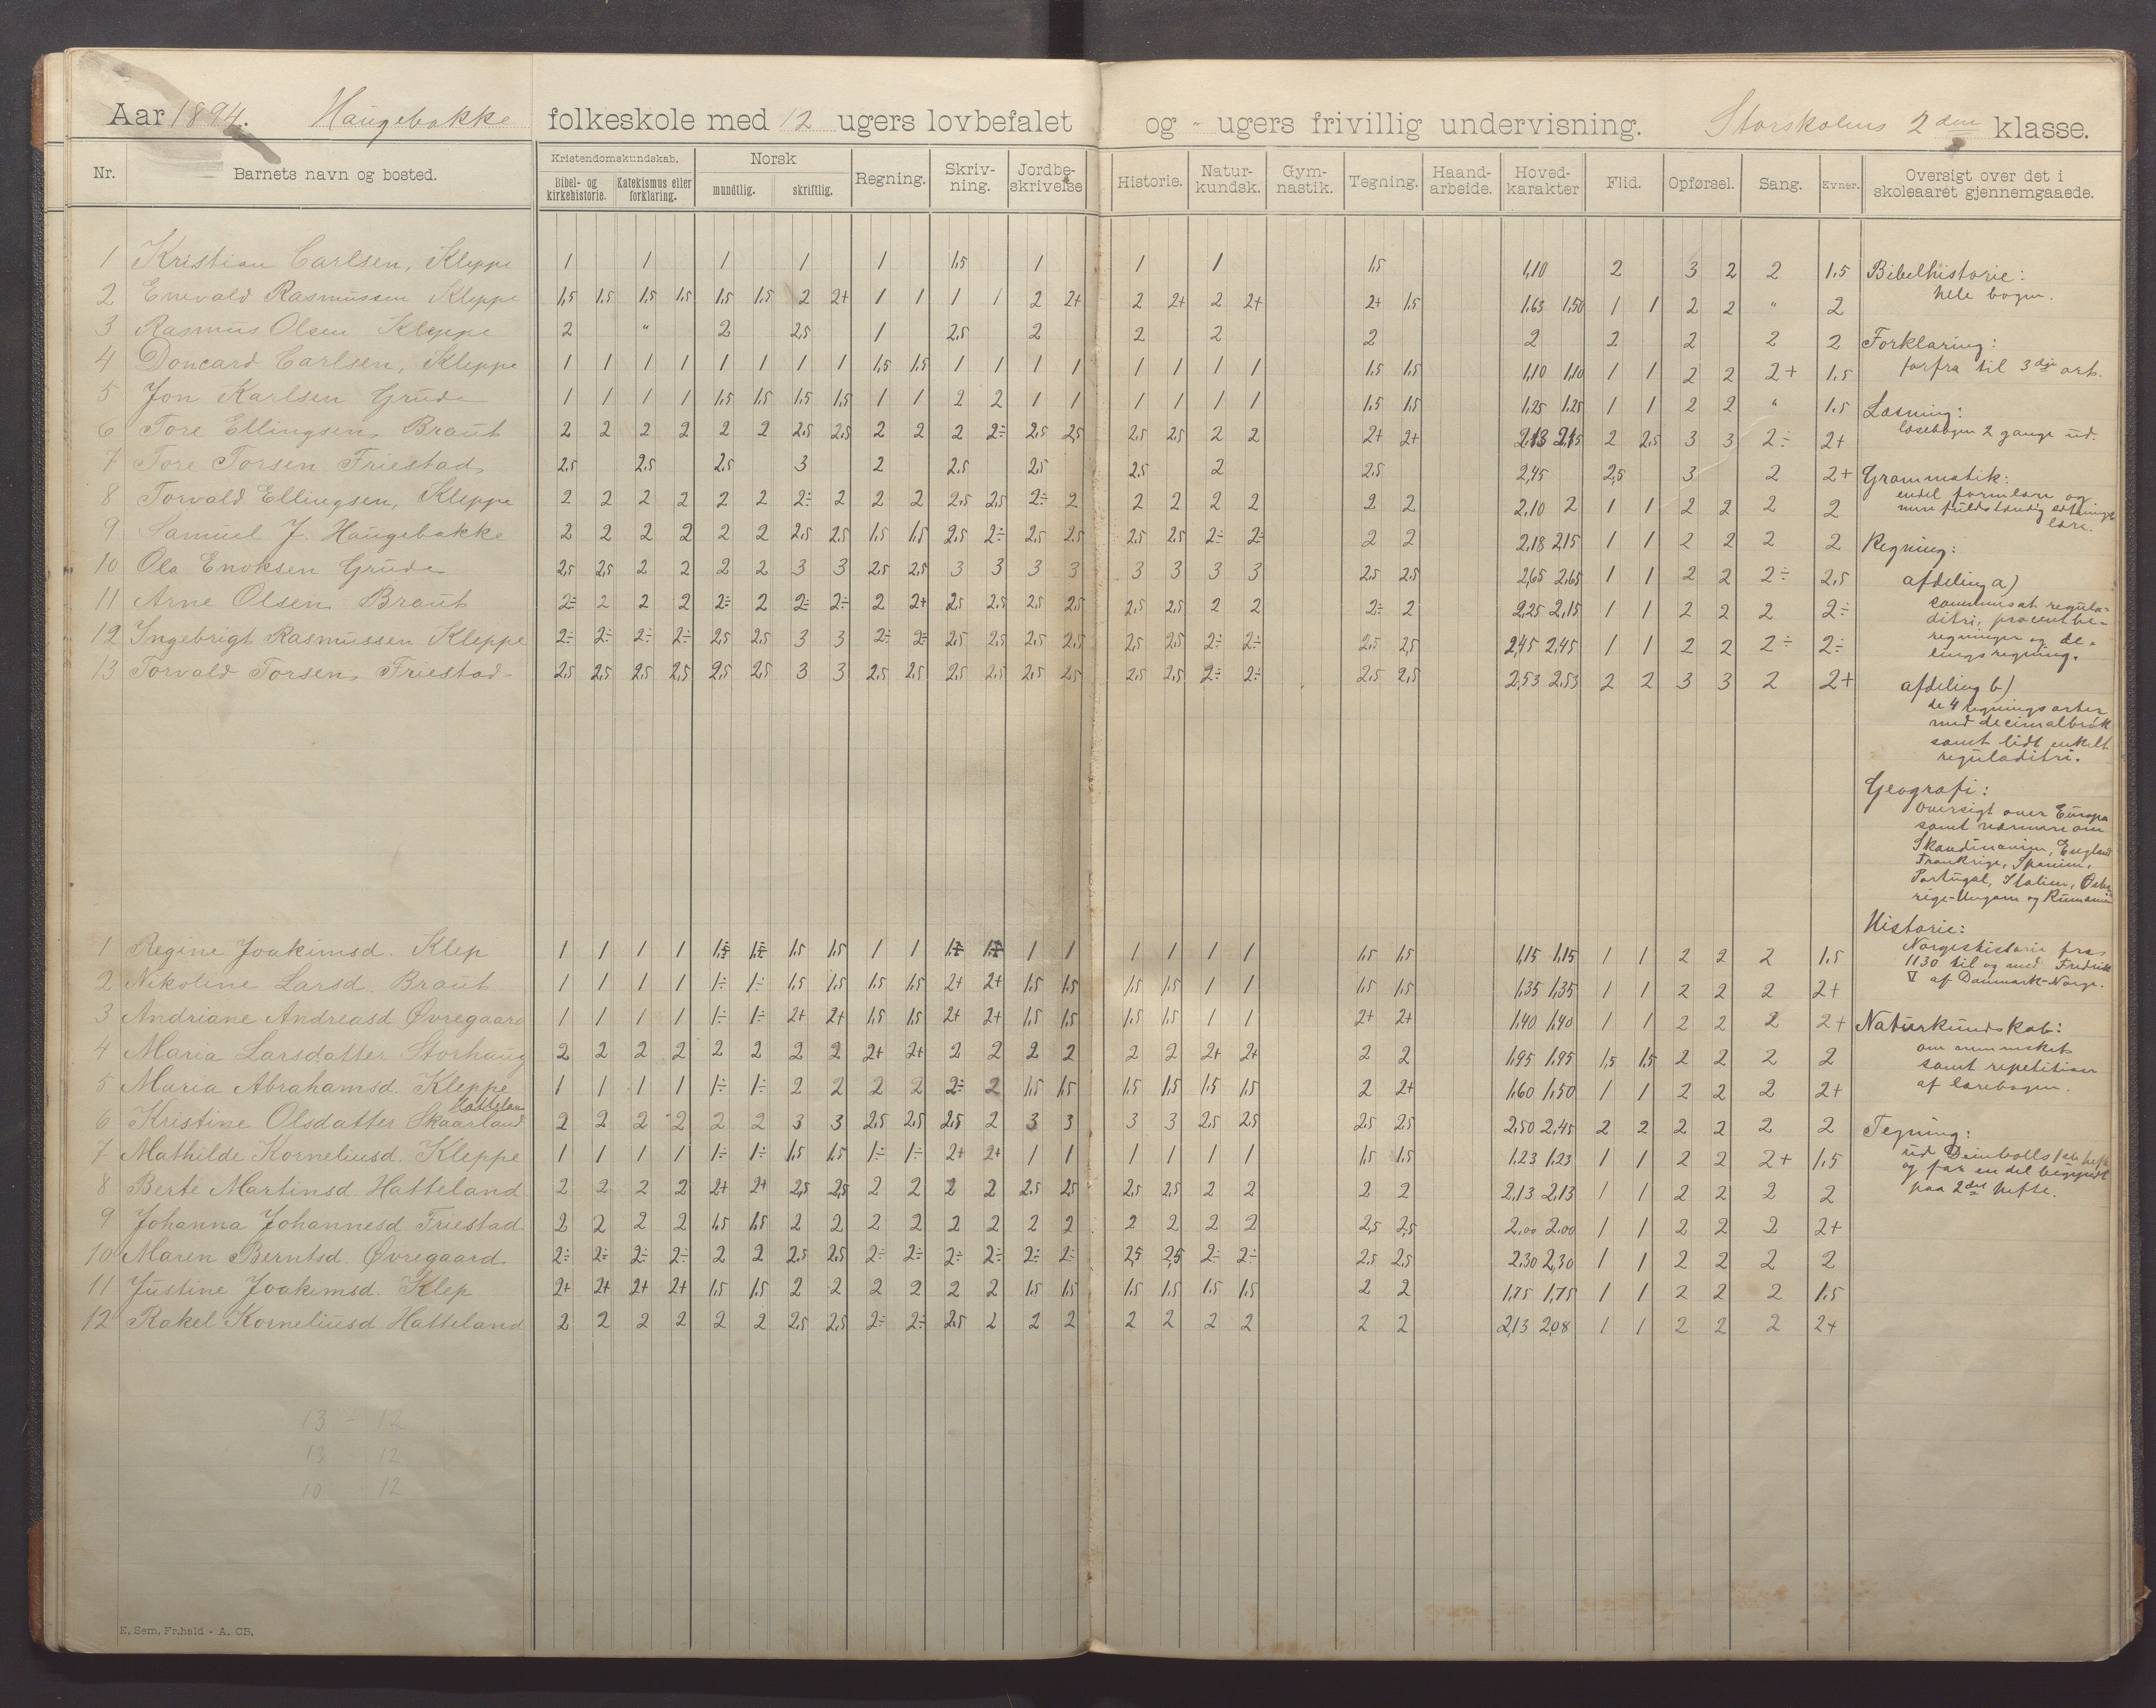 Aar 1894. Haugebakke folkeskole med 12 ugers lovbefalet og " ugers frivillig undervisning. Storskolens 2den klasse.
Nr. Barnets navn og bosted. Kristendomskundskab. Norsk Regning. Skriv-ning. Jordbe-skrivelse Historie. Natur-kundsk. Gym-nastik. Tegning. Haand-arbeide. Hoved-karakter Flid. Opførsel. Sang. Evner. Oversigt over det i skoleaaret gjennemgaaede.
Bibel- og kirkehistorie. Katekismus eller forklaring. mundtlig. skriftlig.
1 Kristian Carlsen, Kleppe 1 1 1 1 1 1,5 1 1 1 1,5 1,10 2 3 2 2 1,5
2 Enevald Rasmussen Kleppe 1,5 1,5 1,5 1,5 1,5 1,5 2 2+ 1 1 1 1 2 2+ 2 2+ 2 2+ 2+ 1,5 1,63 1,50 1 1 2 2 " 2
3 Rasmus Olsen Kleppe 2 " 2 2,5 1 2,5 2 2 2 2 2 2 2 2 2
4 Doncard Carlsen, Kleppe 1 1 1 1 1 1 1 1 1,5 1,5 1 1 1 1 1 1 1 1 1,5 1,5 1,10 1,10 1 1 2 2 2+ 1,5
5 Jon Karlsen Grude 1 1 1 1 1,5 1,5 1,5 1,5 1 1 2 2 1 1 1 1 1 1 1,5 1,5 1,25 1,25 1 1 2 2 " 1,5
6 Tore Ellingsen, Braut 2 2 2 2 2 2 2,5 2,5 2 2 2 2÷ 2,5 2,5 2,5 2,5 2 2 2+ 2+ 2,13 2,15 2 2,5 3 3 2÷ 2+
7 Tore Torsen Friestad 2,5 2,5 2,5 3 2 2,5 2,5 2,5 2 2,5 2,45 2,5 3 2 2+
8 Torvald Ellingsen, Kleppe 2 2 2 2 2 2 2÷ 2 2 2 2,5 2,5 2÷ 2 2 2 2 2 2 2 2,10 2 1 1 2 2 2 2
9 Samuel J. Haugebakke 2 2 2 2 2 2 2,5 2,5 1,5 1,5 2,5 2÷ 2,5 2,5 2,5 2,5 2÷ 2÷ 2 2 2,18 2,15 1 1 2 2 2 2
10 Ola Enoksen Grude 2,5 2,5 2 2 2 2 3 3 2,5 2,5 3 3 3 3 3 3 3 3 2,5 2,5 2,65 2,65 1 1 2 2 2÷ 2,5
11 Arne Olsen Braut 2÷ 2 2 2 2÷ 2 2÷ 2÷ 2 2+ 2,5 2,5 2,5 2,5 2,5 2,5 2 2 2÷ 2 2,25 2,15 1 1 2 2 2 2÷
12 Ingebrigt Rasmussen Kleppe 2÷ 2÷ 2÷ 2÷ 2,5 2,5 3 3 2÷ 2÷ 2,5 2,5 2,5 2,5 2,5 2,5 2÷ 2÷ 2,5 2,5 2,45 2,45 1 1 2 2 2÷ 2÷
13 Torvald Torsen, Friestad 2,5 2,5 2,5 2,5 2,5 2,5 3 3 2,5 2,5 2,5 2,5 2,5 2,5 2,5 2,5 2÷ 2÷ 2,5 2,5 2,53 2,53 2 2 3 3 2 2+
1 Regine Joakimsd. Klep 1 1 1 1 1÷ 1÷ 1,5 1,5 1 1 1 1 1 1 1 1 1,5 1,5 1,15 1,15 1 1 2 2 2 1,5
2 Nikoline Larsd. Braut 1 1 1 1 1÷ 1÷ 1,5 1,5 1,5 1,5 2+ 2+ 1,5 1,5 1,5 1,5 1 1 1,5 1,5 1,35 1,35 1 1 2 2 2 2+
3 Andriane Andreasd Øvregaard 1 1 1 1 1÷ 1÷ 2+ 2+ 1,5 1,5 2+ 2+ 1,5 1,5 1,5 1,5 1 1 2+ 2+ 1,40 1,40 1 1 2 2 2 2+
4 Maria Larsdatter Storhaug 2 2 2 2 2 2 2 2 2+ 2+ 2 2 2 2 2 2 2+ 2+ 2 2 1,95 1,95 1,5 1,5 2 2 2 2
5 Maria Abrahamsd. Kleppe 1 1 1 1 1÷ 1÷ 2 2 2 2 2÷ 2 1,5 1,5 1,5 1,5 1,5 1,5 2 2+ 1,60 1,50 1 1 2 2 2 2+
Hatteland
6 Kristine Olsdatter Skaarland 2 2 2 2 2 2 3 3 2,5 2,5 2,5 2 3 3 3 3 2,5 2,5 2,5 2,5 2,50 2,45 2 2 2 2 2 2
7 Mathilde Korneliusd. Kleppe 1 1 1 1 1÷ 1÷ 1,5 1,5 1÷ 1÷ 2+ 2+ 1 1 1 1 1 1 1,5 1,5 1,23 1,23 1 1 2 2 2+ 1,5
8 Berte Martinsd. Hatteland 2 2 2 2 2+ 2+ 2,5 2,5 2 2 2 2 2,5 2,5 2,5 2,5 2 2 2 2 2,13 2,13 1 1 2 2 2 2
9 Johanna Johannesd Friestad 2 2 2 2 1,5 1,5 2 2 2 2 2 2 2 2 2 2 2 2 2,5 2,5 2,00 2,00 1 1 2 2 2 2+
10 Maren Berntsd. Øvregaard 2÷ 2÷ 2÷ 2÷ 2 2 2,5 2,5 2÷ 2÷ 2÷ 2÷ 2÷ 2÷ 2,5 2,5 2÷ 2÷ 2,5 2,5 2,30 2,30 1 1 2 2 2 2
11 Justine Joakimsd. Klep 2+ 2+ 2+ 2+ 1,5 1,5 2 2 2 2 2 2 1,5 1,5 1,5 1,5 1,5 1,5 2 2 1,75 1,75 1 1 2 2 2 1,5
12 Rakel Korneliusd Hatteland 2 2 2 2 2 2 2,5 2,5 2÷ 2÷ 2,5 2 2 2 2 2 2 2 2 2 2,13 2,08 1 1 2 2 2 2+
13 - 12
13 12
10 12
Bibelhistorie:
hele bogen.
Forklaring:
forfra til 3die art.
Læsning:
læsebogen 2 gange ud.
Grammatik:
endel formlære og
mere fuldstændig sætnings
lære.
Regning:
afdeling a)
sammensat regula-
ditri, procentbe-
regninger og de-
lingsregning.
afdeling b)
de 4 regningsarter
med decimalbrøk
samt lidt enkelt
reguladitri.
Geografi:
Oversigt over Europa
samt nærmere om
Skandinavien, England
Frankrige, Spanien,
Portugal, Italien, Øster-
rige-Ungarn og Rumænien
Historie:
Norgeshistorie fra
1130 til og med Fredrik
V af Danmark-Norge.
Naturkundskab:
om mennesket
samt repetition
af lærebogen.
Tegning:
ud Deinbolls 1ste hefte
og for en del begyndt
paa 2det hefte.
E. Sem, Fr.hald - A. OB.